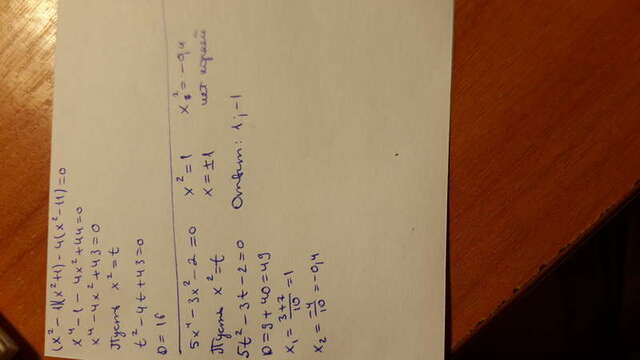 (x² - 1)(x² + 1) - 4(x² - 11) = 0
x⁴ - 1 - 4x² + 44 = 0
x⁴ - 4x² + 43 = 0
Пусть x² = t
t² - 4t + 43 = 0
D = 16
5x⁴ - 3x² - 2 = 0
Пусть x² = t
5t² - 3t - 2 = 0
D = 9 + 40 = 49
x₁ = (3+7)/10 = 1
x₂ = -4/10 = -0,4
x² = 1
x = ±1
x² = -0,4
нет корней
Ответ: 1; -1